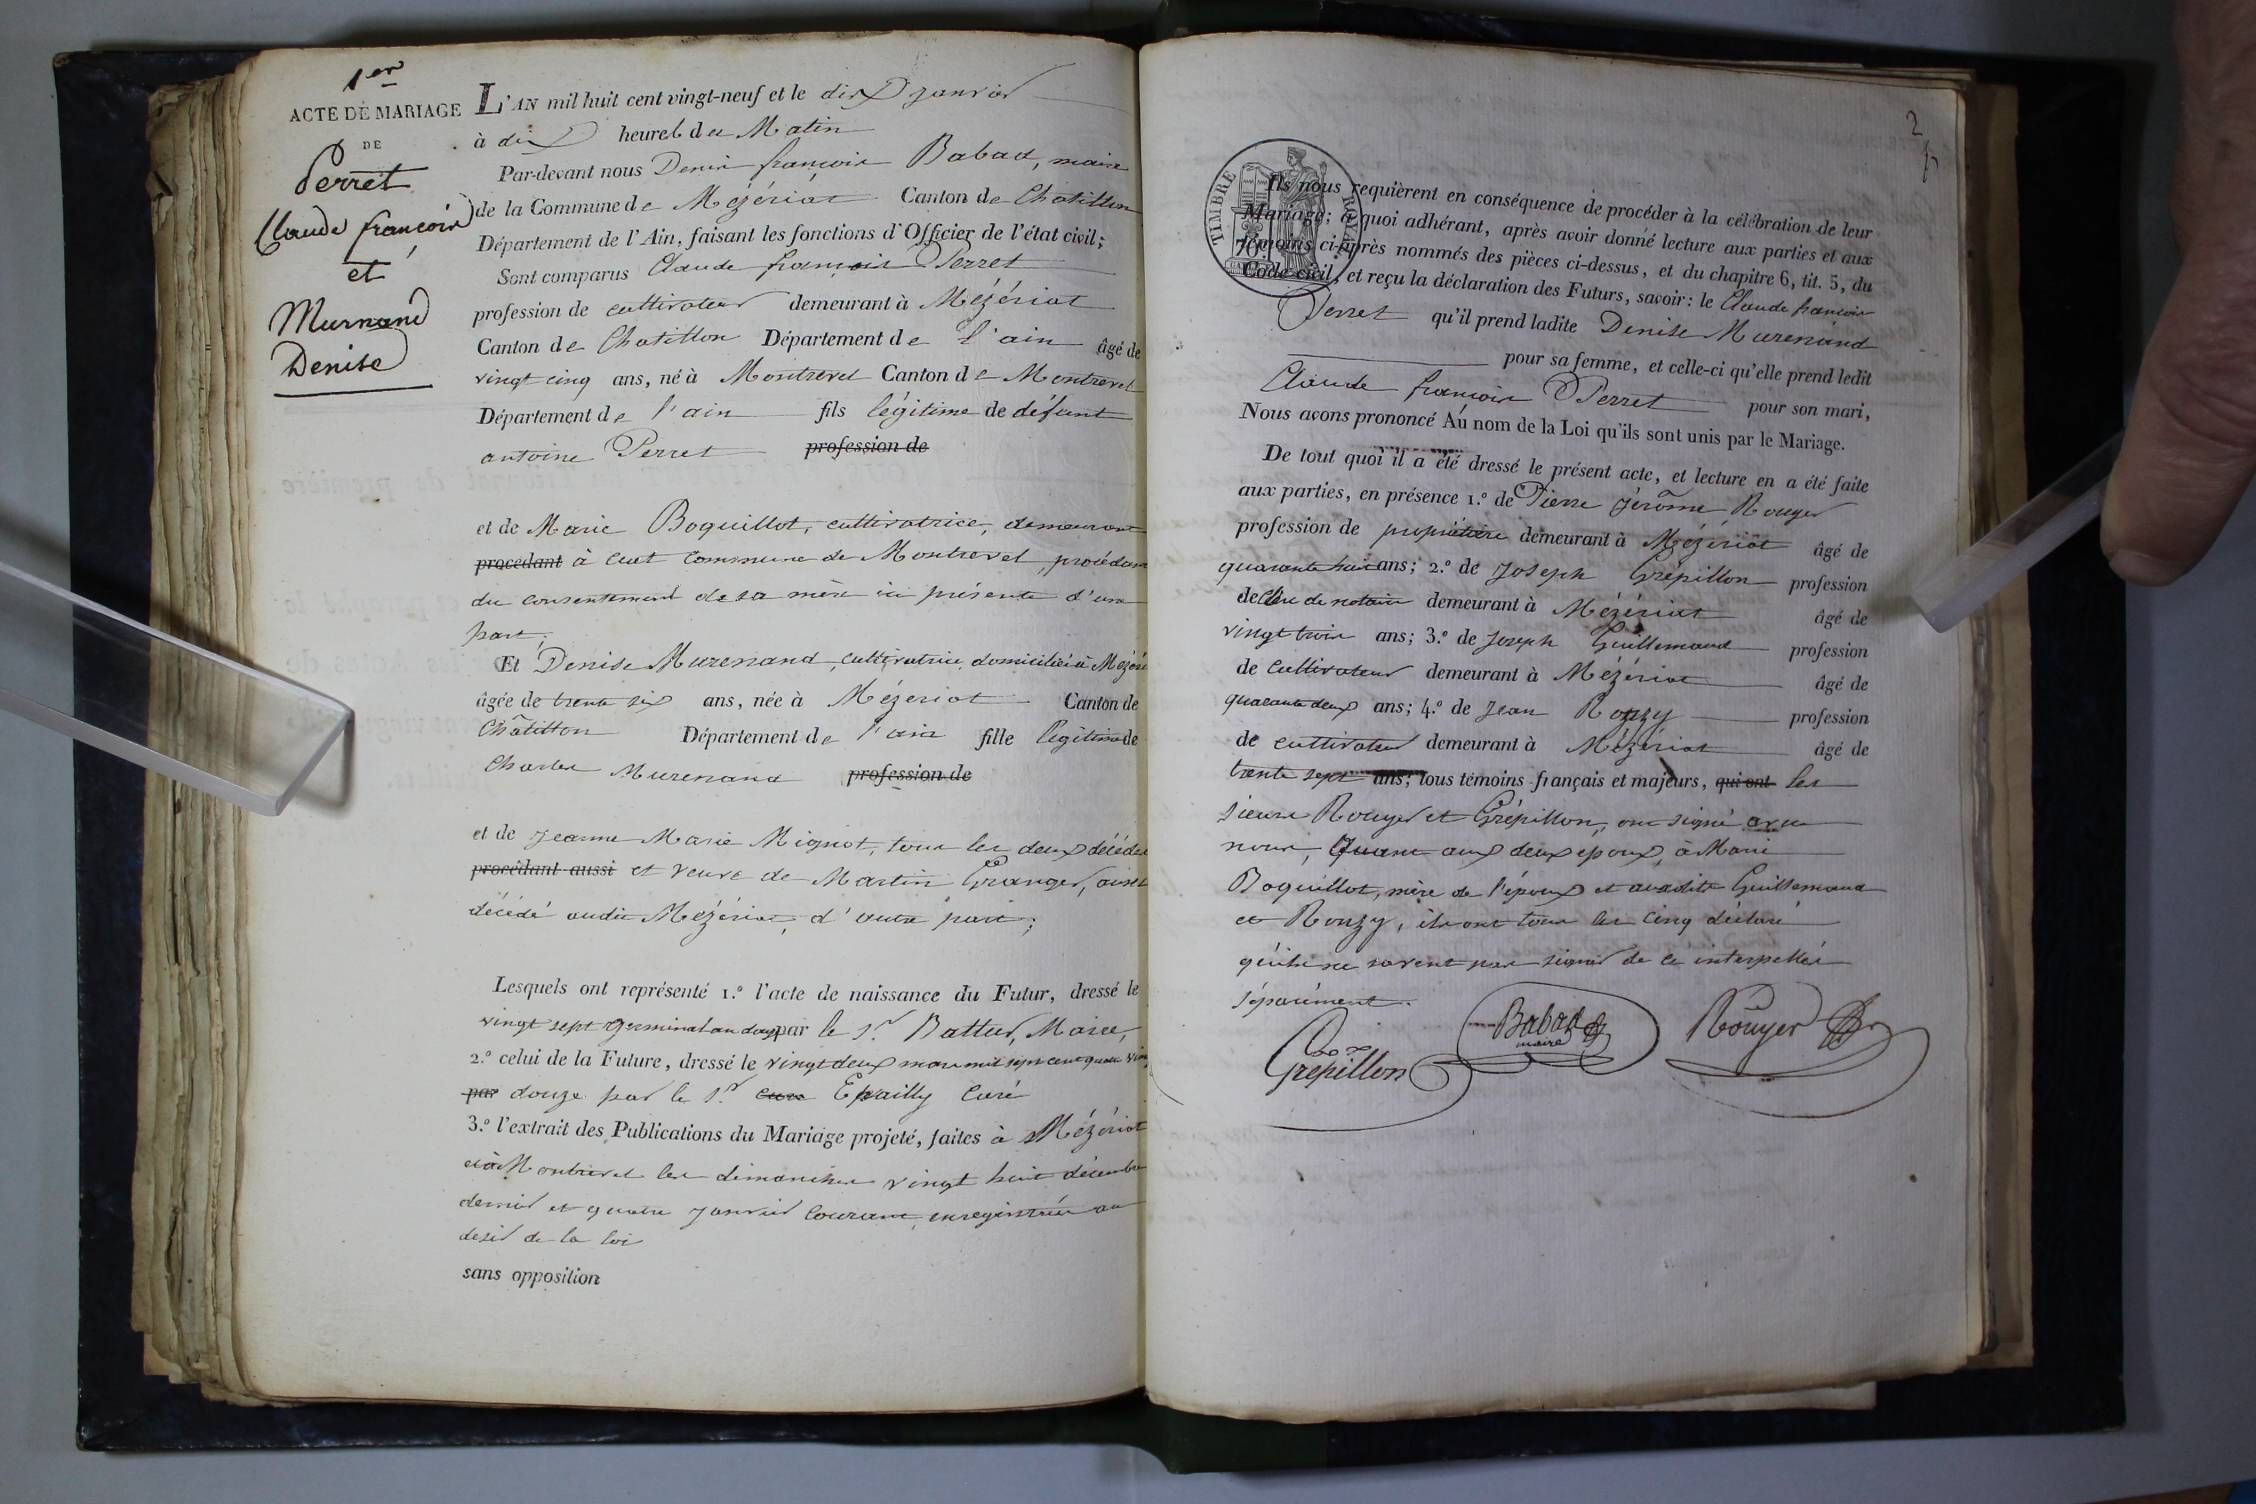 1er
ACTE DE MARIAGE
DE
Perret
Claude françois
et
Murnand
Denise
L'AN mil huit cent vingt-neuf et le dix janvier
à dix heures du Matin
Par-devant nous Denis françois Babad, maire
de la Commune de Mézériat Canton de Chatillon
Département de l'Ain, faisant les fonctions d'Officier de l'état civil;
Sont comparus Claude françois Perret
profession de cultivateur demeurant à Mézériat
Canton de Chatillon Département de l'ain âgé de
vingt cinq ans, né à Montrevel Canton de Montrevel
Département de l'ain fils légitime de défunt
antoine Perret profession de
et de Marie Boquillot, cultivatrice, demeurant
procédant à Cuet Commune de Montrevel, procédant
du consentement de sa mère ici présente d'une
part;
Et Denise Murenand, cultivatrice domiciliée à Mézéri
âgée de trente six ans, née à Mézeriat Canton de
Châtillon Département de l'ain fille légitime de
Charles Murenand profession de
et de Jeanne Marie Mignot, tous les deux décédés
procédant aussi et veuve de Martin Granger, aussi
décédé audit Mézériat, d'autre part;
Lesquels ont représenté 1.º l'acte de naissance du Futur, dressé le
vingt sept germinal an douze par le Sr Battur, Maire,
2.º celui de la Future, dressé le vingt deux mars mil sept cent quatre vin
par douze par le Sr Epailly Curé
3.º l'extrait des Publications du Mariage projeté, faites à Mézériat
et à Montrevel les dimanches vingt huit décembre
dernier et quatre janvier Courant, enregistrées au
desir de la loi
sans opposition
2
TIMBRE ROYAL
70
Ils nous requièrent en conséquence de procéder à la célébration de leur
Mariage; à quoi adhérant, après avoir donné lecture aux parties et aux
témoins ci-après nommés des pièces ci-dessus, et du chapitre 6, tit. 5, du
Code civil, et reçu la déclaration des Futurs, savoir: le Claude françois
Perret qu'il prend ladite Denise Murenand
pour sa femme, et celle-ci qu'elle prend ledit
Claude françois Perret pour son mari,
Nous avons prononcé Au nom de la Loi qu'ils sont unis par le Mariage.
De tout quoi il a été dressé le présent acte, et lecture en a été faite
aux parties, en présence 1.º de Pierre Jérôme Rouyer
profession de propriétaire demeurant à Mézériat âgé de
quarante huit ans; 2.º de Joseph Grépillon profession
de clerc de notaire demeurant à Mézériat âgé de
vingt trois ans; 3.º de Joseph Guillemaud profession
de Cultivateur demeurant à Mézériat âgé de
quarante deux ans; 4.º de Jean Ronzy profession
de cultivateur demeurant à Mézériat âgé de
trente sept ans; tous témoins français et majeurs, qui ont les
sieurs Rouyer et Grépillon, ont signé avec
nous, Quant aux deux époux, à Marie
Boquillot, mère de l'époux et auxdits Guillemaud
et Ronzy, ils ont tous les cinq déclaré
qu'ils ne savent pas signer de ce interpellés
séparément.
Grépillon
Babad
maire
Rouyer